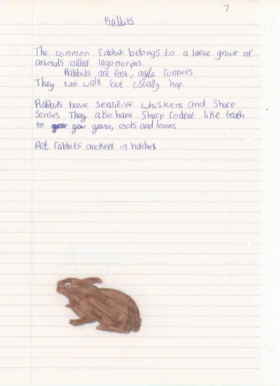 7
Rabbits
The common rabbit belongs to a large group of
animals called lagomorphs.
Rabbits are fast, agile runners.
They can walk but usually hop.
Rabbits have sensitive whiskers and sharp
senses. They also have sharp rodent like teeth
to gnaw grass, roots and leaves.
Pet rabbits are kept in hutches